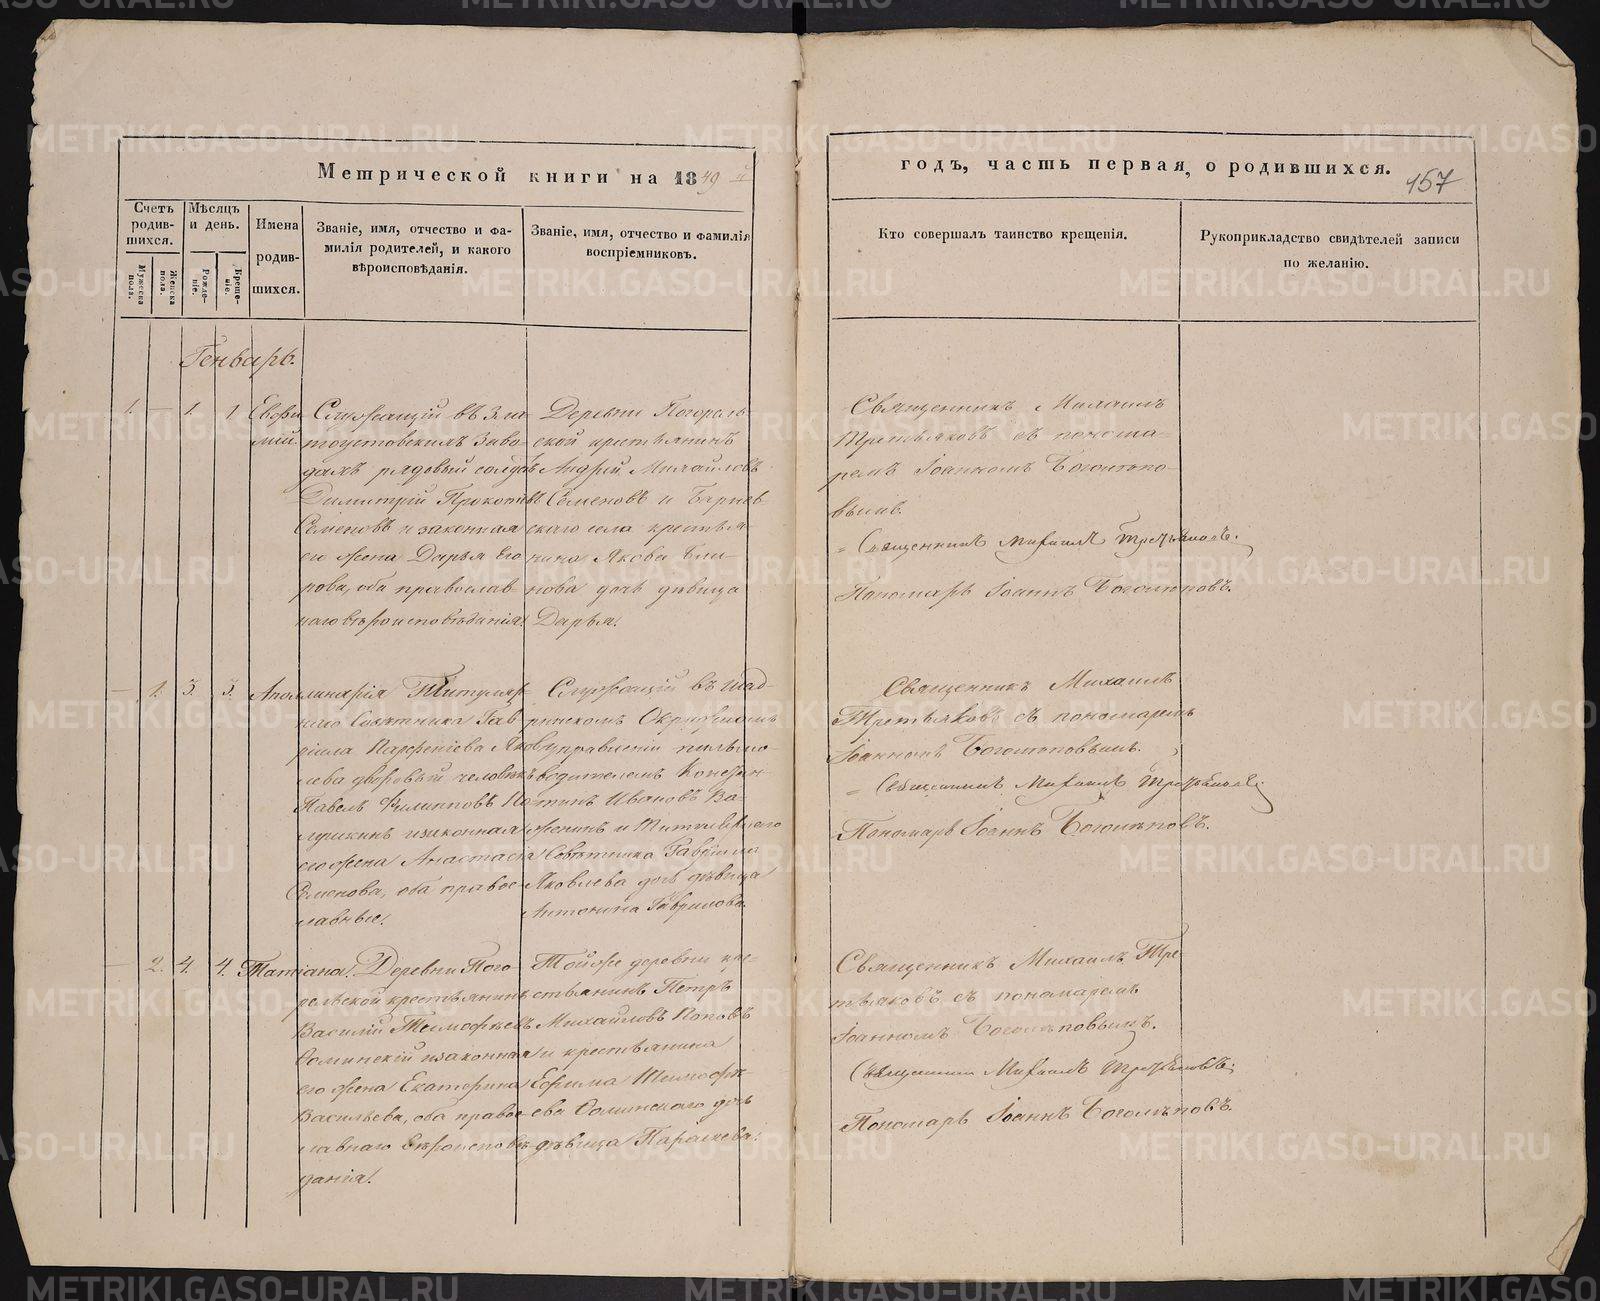 Метрической книги на 1849 й
годъ, часть первая, о родившихся.
157
Счетъ родив-шихся.
Мѣсяцъ и день.
Имена родив-шихся.
Званіе, имя, отчество и фа-
милія родителей, и какого
вѣроисповѣданія.
Званіе, имя, отчество и фамилія
воспріемниковъ.
Кто совершалъ таинство крещенія.
Рукоприкладство свидѣтелей записи
по желанію.
Мужеска пола.
Женска пола.
Рожде-ніе.
Креще-ніе.
Генварь.
1. — 1. 1
Евфи-
мій.
Служащій въ Зла-
тоустовскихъ Заво-
дахъ рядовый солдатъ
Димитрій Прокопьевъ
Семеновъ и законная
его жена Дарья Его-
рова, оба православ-
наго вѣроисповѣданія.
Деревни Погорѣль-
ской крестьянинъ
Андрей Михайловъ
Семеновъ и Барнев-
скаго села крестья-
нина Якова
нова дочь дѣвица
Дарья.
Священникъ Михаилъ
Третьяковъ съ понома-
ремъ Іоанномъ Боголѣпо-
вымъ.
Священникъ Михаилъ Третьяковъ.
Пономарь Іоаннъ Боголѣповъ.
— 1. 3. 3.
Аполлинарія
Титуляр-
наго Совѣтника Гав-
ріила Парѳеніева Яков-
лева дворовый человѣкъ
Павелъ Филипповъ По-
лушкинъ и законная
его жена Анастасія
Семенова, оба правос-
лавные.
Служащій въ Шад-
ринскомъ Окружномъ
управленіи письмо-
водителемъ Констан-
тинъ Ивановъ Ва-
женинъ и Титулярнаго
Совѣтника Гавріила
Яковлева дочь дѣвица
Антонина Гаврилова.
Священникъ Михаилъ
Третьяковъ съ пономаремъ
Іоанномъ Боголѣповымъ.
Священникъ Михаилъ Третьяковъ.
Пономарь Іоаннъ Боголѣповъ.
— 2. 4. 4.
Татіана.
Деревни Пого-
рѣльской крестьянинъ
Василій Тимофѣевъ
Фоминскій и законная
его жена Екатерина
Васильева, оба правос-
лавнаго вѣроисповѣ-
данія.
Тойже деревни кре-
стьянинъ Петръ
Михайловъ Поповъ
и крестьянина
Ефима Тимофѣ-
ева Фоминскаго дочь
дѣвица Параскева.
Священникъ Михаилъ Тре-
тьяковъ съ пономаремъ
Іоанномъ Боголѣповымъ.
Священникъ Михаилъ Третьяковъ.
Пономарь Іоаннъ Боголѣповъ.
METRIKI.GASO-URAL.RU